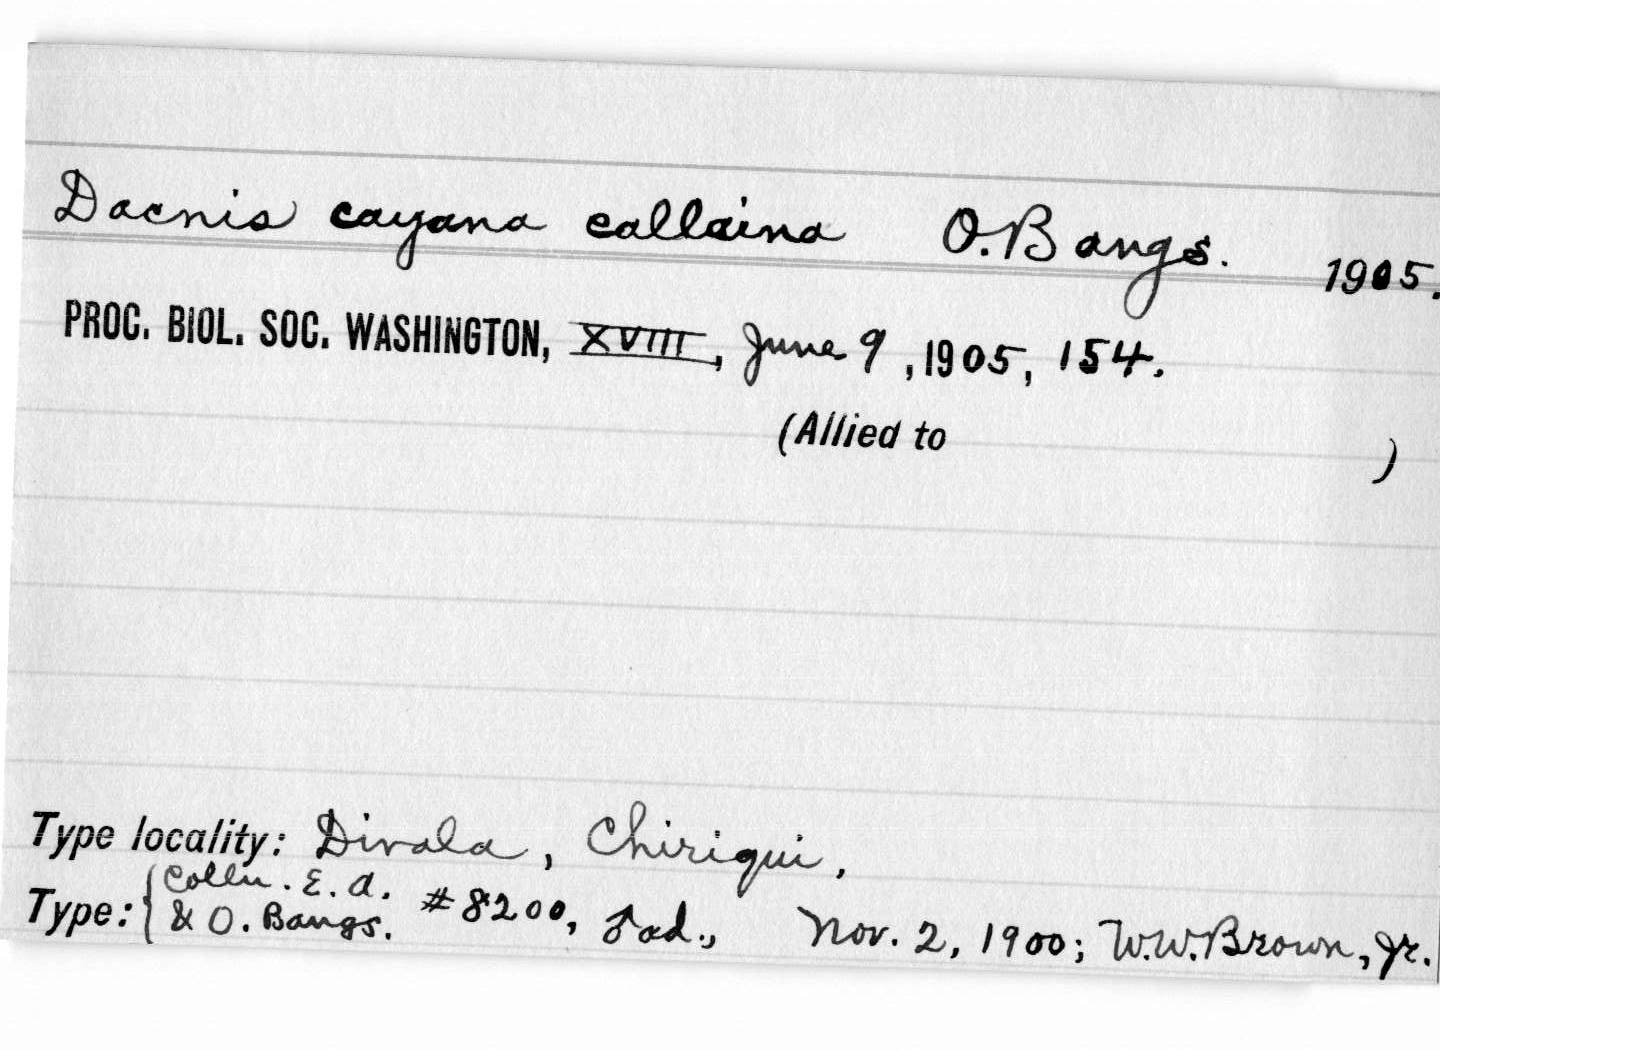 Dacnis cayana callaina O. Bangs. 1905.
PROC. BIOL. SOC. WASHINGTON, XVIII, June 9, 1905, 154.
(Allied to )
Type locality: Divala, Chiriqui,
Type: { Colln. E. A. & O. Bangs. #8200, ♂ad., Nov. 2, 1900; W.W. Brown, Jr.